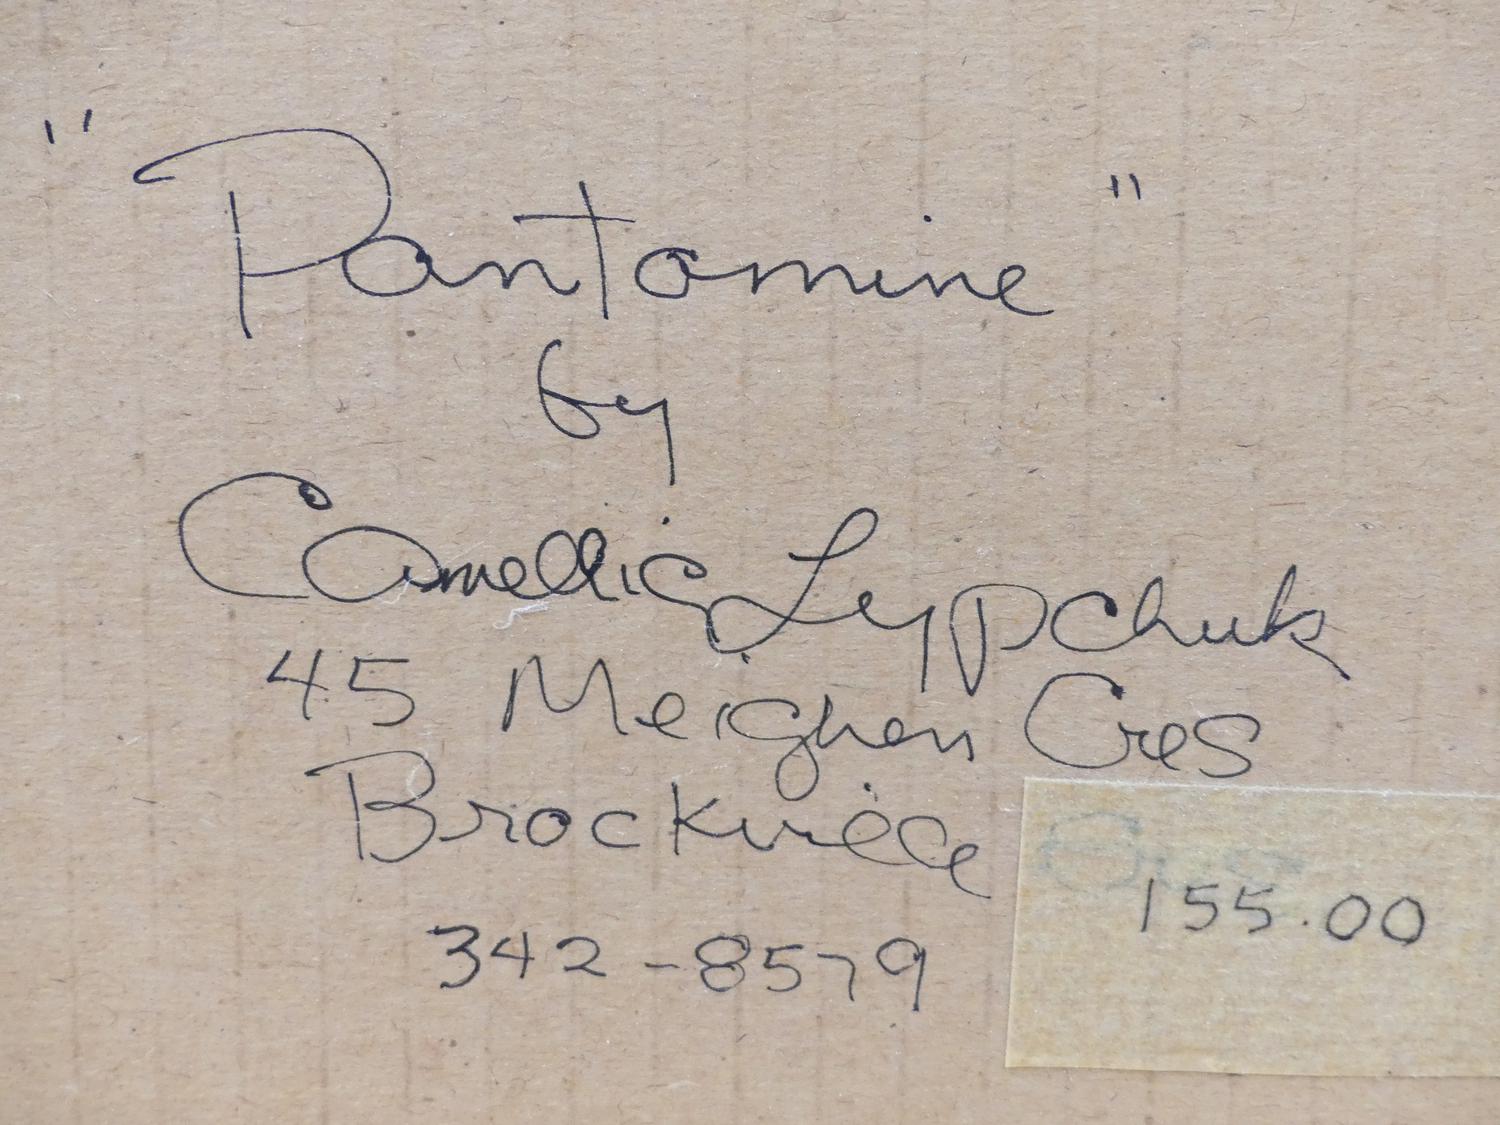 "Pantomine"
by
Camellia Lypchuk
45 Meighen Cres
Brockville
342-8579
155.00